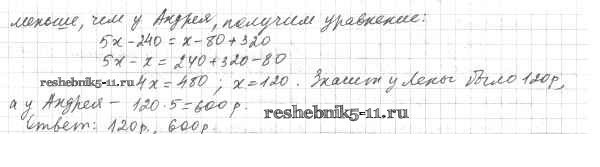 меньше, чем у Андрея, получим уравнение:
5x-240=x-80+320
5x-x=240+320-80
reshebnik5-11.ru 4x=480; x=120. Значит у Лены было 120р,
а у Андрея - 120·5=600р.
reshebnik5-11.ru
Ответ: 120р., 600р.